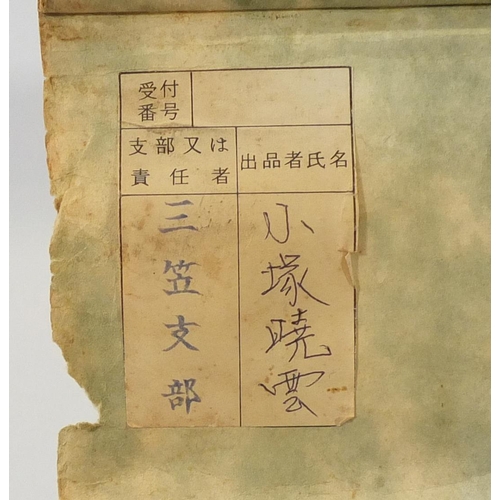 受付
番号
支部又は
責任者
出品者氏名
三笠支部
小塚曉雲